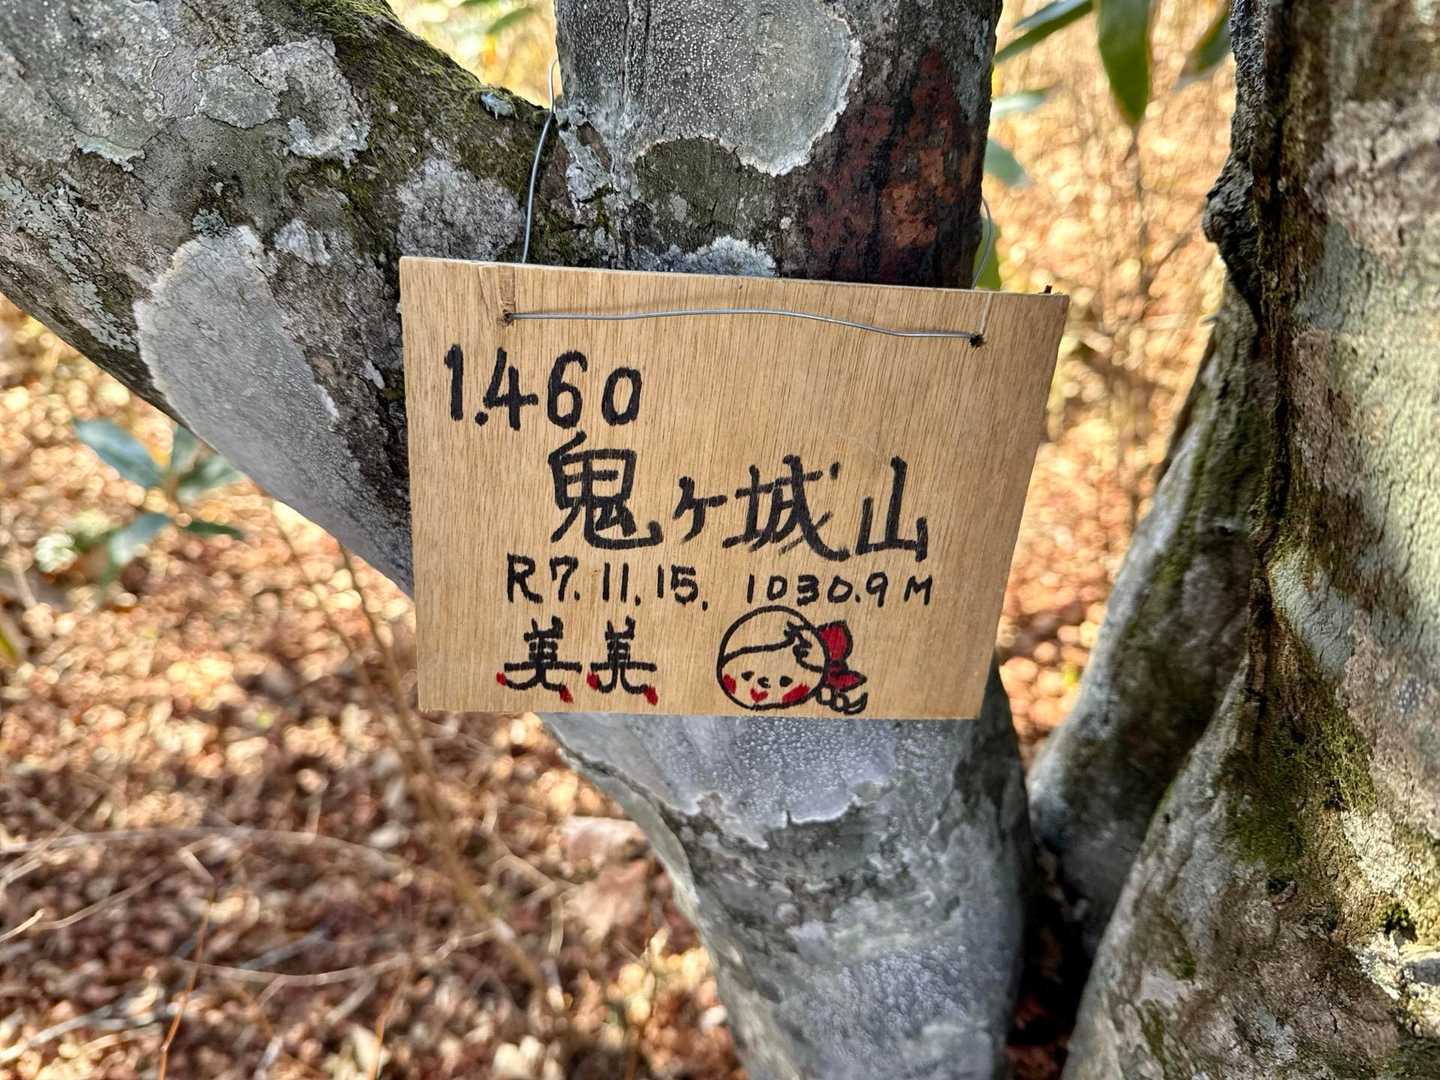 1.460
鬼ヶ城山
R7.11.15. 1030.9M
美美